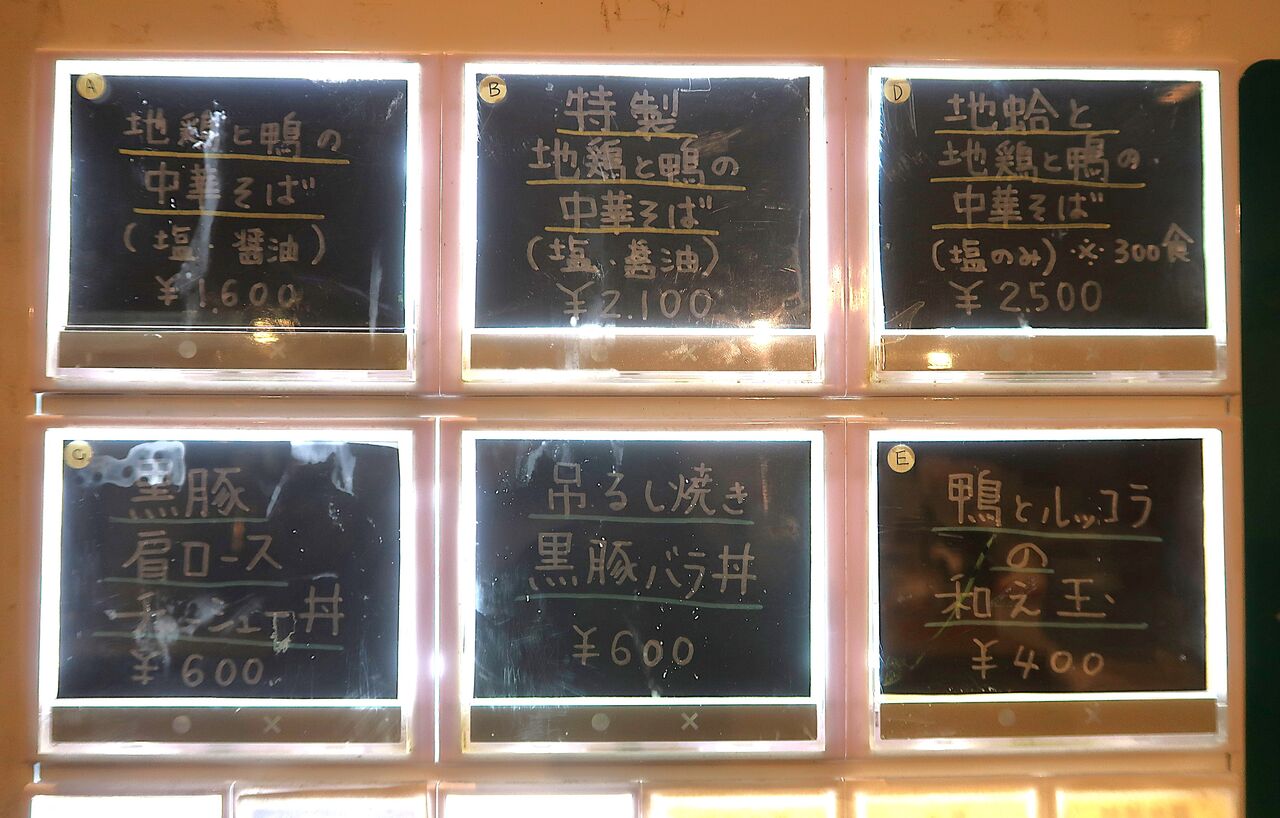 A
地鶏と鴨の
中華そば
(塩・醤油)
¥1.600
B
特製
地鶏と鴨の
中華そば
(塩・醤油)
¥2.100
D
地蛤と
地鶏と鴨の
中華そば
(塩のみ)※300食
¥2500
C
黒豚
肩ロース
チャーシュー丼
¥600
吊るし焼き
黒豚バラ丼
¥600
E
鴨とルッコラ
の
和え玉
¥400